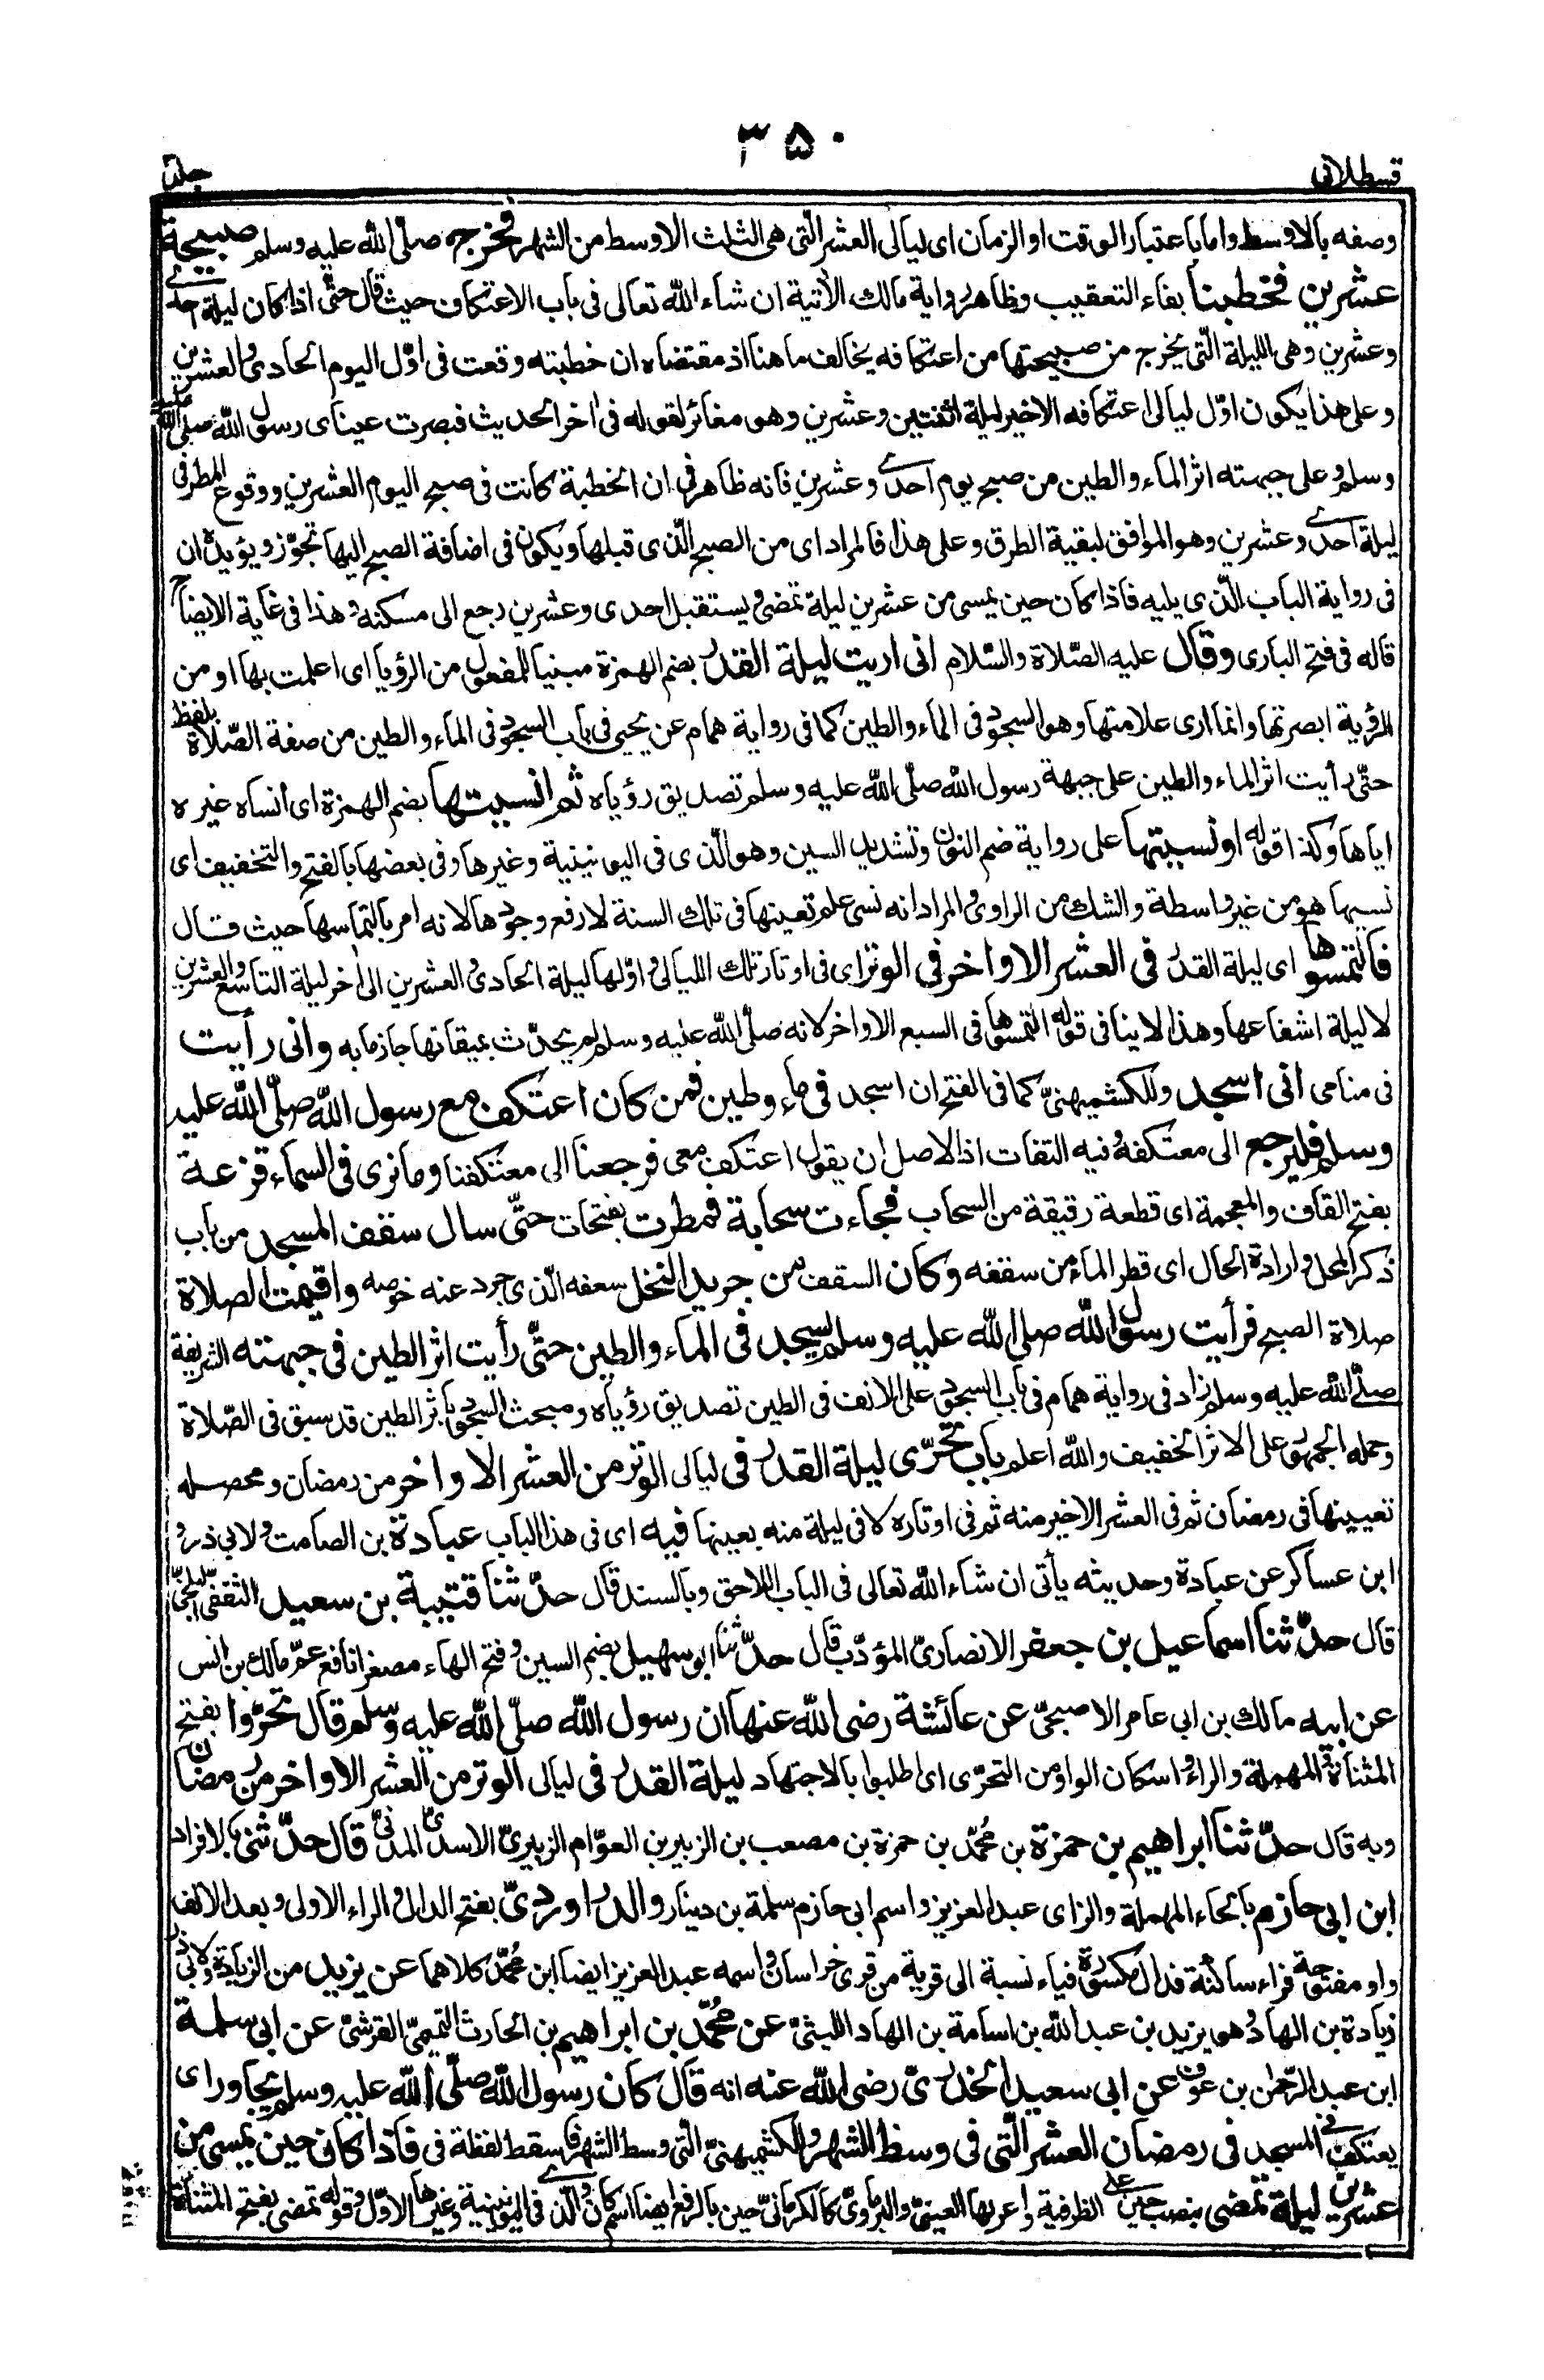 ٣٥٠
قسطلانی
جلد
وصفه بالاوسط واما باعتبار الوقت او الزمان ای لیالی العشر الّتی هی الثلث الاوسط من الشهر فخرج صلّی اللّٰه علیه وسلم صبیحة
عشرین فخطبنا بفاء التعقیب وظاهر روایة مالك الأتیة ان شاء اللّٰه تعالی فی باب الاعتكاف حیث قال حتّٰی اذا كان لیلة احدی
وعشرین وهی اللیلة الّتی یخرج من صبیحتها من اعتكافه یخالف ما هنا اذ مقتضاه ان خطبته وقعت فی اوّل الیوم الحادی والعشرین
وعلی هذا یكون اوّل لیالی اعتكافه الاخیر لیلة اثنتین وعشرین وهو مغائر لقوله فی اٰخر الحدیث فبصرت عینای رسول اللّٰه صلی اللّٰه علیه
وسلم وعلی جبهته اثر الماء والطین من صبح یوم احدی وعشرین فانه ظاهر فی ان الخطبة كانت فی صبح الیوم العشرین ووقوع المطر فی
لیلة احدی وعشرین وهو الموافق لبقیة الطرق وعلی هذا فالمراد ای من الصبح الّذی قبلها ویكون فی اضافة الصبح الیها تجوّز ویؤیده ان
فی روایة الباب الّذی یلیه فاذا كان حین یمسی من عشرین لیلة تمضی ویستقبل احدی وعشرین رجع الی مسكنه وهذا فی غایة الایضاح
قاله فی فتح الباری وقال علیه الصّلاة والسّلام انی اریت لیلة القدر بضم الهمزة مبنیا للمفعول من الرؤیا ای اعلمت بها او من
الرؤیة ابصرتها وانما اری علامتها وهو السجود فی الماء والطین كما فی روایة همام عن یحیی فی باب السجود فی الماء والطین من صفة الصّلاة بلفظ
حتّٰی رأیت اثر الماء والطین علی جبهة رسول اللّٰه صلّی اللّٰه علیه وسلم تصدیق رؤیاه ثم انسیتها بضم الهمزة ای أنساه غیره
ایاها وكذا قوله او نسیتها علی روایة ضم النون وتشدید السین وهو الّذی فی الیونینیة وغیرها وفی بعضها بالفتح والتخفیف ای
نسیها هو من غیر واسطة والشك من الراوی والمراد انه نسی علم تعیینها فی تلك السنة لا رفع وجودها لانه امر بالتماسها حیث قال
فالتمسوها ای لیلة القدر فی العشر الاواخر فی الوتر ای فی اوتار تلك اللیالی واوّلها لیلة الحادی والعشرین الی اٰخر لیلة التاسع والعشرین
لا لیلة اشفاعها وهذا لا ینافی قوله التمسوها فی السبع الاواخر لانه صلّی اللّٰه علیه وسلم لم یحدّث بمیقاتها جازما به وانی رأیت
فی منامی انی اسجد وللكشمیهنیّ كما فی الفتح ان اسجد فی ماء وطین فمن كان اعتكف مع رسول اللّٰه صلّی اللّٰه علیه
وسلم فلیرجع الی معتكفه وفیه التفات اذ الاصل ان یقول اعتكف معی فرجعنا الی معتكفنا وما نری فی السماء قزعة
بفتح القاف والمعجمة ای قطعة رقیقة من السحاب فجاءت سحابة فمطرت بفتحات حتّٰی سال سقف المسجد من باب
ذكر المحل وارادة الحال ای قطر الماء من سقفه وكان السقف من جرید النخل سعفه الّذی جرد عنه خوصه واقیمت الصلاة
صلاة الصبح فرأیت رسول اللّٰه صلی اللّٰه علیه وسلم یسجد فی الماء والطین حتّٰی رأیت اثر الطین فی جبهته الشریفة
صلّی اللّٰه علیه وسلم زاد فی روایة همام فی باب السجود علی الانف فی الطین تصدیق رؤیاه ومبحث السجود بأثر الطین قد سبق فی الصّلاة
وحمله الجمهور علی الاثر الخفیف واللّٰه اعلم باب تحرّی لیلة القدر فی لیالی الوتر من العشر الاواخر من رمضان ومحصله
تعیینها فی رمضان ثم فی العشر الاخیر منه ثم فی اوتاره لا فی لیلة منه بعینها فیه ای فی هذا الباب عبادة بن الصامت ولابی ذر و
ابن عساكر عن عبادة وحدیثه یأتی ان شاء اللّٰه تعالی فی الباب اللاحق وبالسند قال حدّثنا قتیبة بن سعید الثقفیّ البلخیّ
قال حدّثنا اسماعیل بن جعفر الانصاریّ المؤدّب قال حدّثنا ابو سهیل بضم السین وفتح الهاء مصغرا نافع عمّ مالك بن انس
عن ابیه مالك بن ابی عامر الاصبحیّ عن عائشة رضی اللّٰه عنها ان رسول اللّٰه صلّی اللّٰه علیه وسلم قال تحرّوا بفتح
المثناة والمهملة والراء واسكان الواو من التحرّی ای اطلبوا بالاجتهاد لیلة القدر فی لیالی الوتر من العشر الاواخر من رمضان
وبه قال حدّثنا ابراهیم بن حمزة بن محمّد بن حمزة بن مصعب بن الزبیر بن العوّام الزبیریّ الاسدیّ المدنیّ قال حدّثنی بالافراد
ابن ابی حازم بالحاء المهملة والزای عبد العزیز واسم ابی حازم سلمة بن دینار والدراوردیّ بفتح الدال والراء الاولی وبعد الالف
واو مفتوحة فراء ساكنة فدال مكسورة فیاء نسبة الی قریة من قری خراسان واسمه عبد العزیز ایضا ابن محمّد كلاهما عن یزید من الزیادة ولابی ذر
زیادة بن الهاد وهو یزید بن عبد اللّٰه بن اسامة بن الهاد اللیثیّ عن محمّد بن ابراهیم بن الحارث التیمیّ القرشیّ عن ابی سلمة
ابن عبد الرّحمٰن بن عوف عن ابی سعید الخدریّ رضی اللّٰه عنه انه قال كان رسول اللّٰه صلّی اللّٰه علیه وسلم یجاور ای
یعتكف فی المسجد فی رمضان العشر الّتی فی وسط الشهر وللكشمیهنیّ الّتی وسط الشهر فاسقط لفظة فی فاذا كان حین یمسی من
عشرین لیلة تمضی بنصب حین علی الظرفیة واعربها العینیّ والبرماویّ كالكرمانیّ حین بالرفع ایضا اسم كان والّذی فی الیونینیة وغیرها الاوّل وقوله تمضی بفتح المثناة